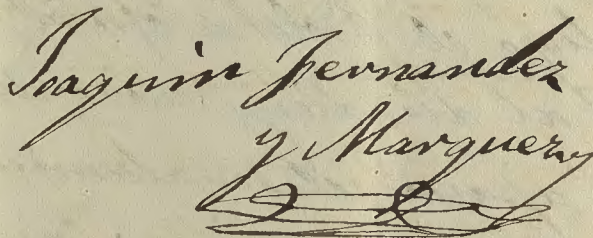 Joaquin Fernandez
y Marquez